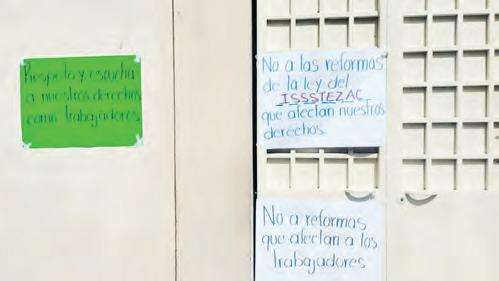 Respeto y escucha
a nuestros derechos
como trabajadores
No a las reformas
de la ley del
ISSSTEZAC
que afectan nuestros
derechos.
No a reformas
que afectan a los
trabajadores